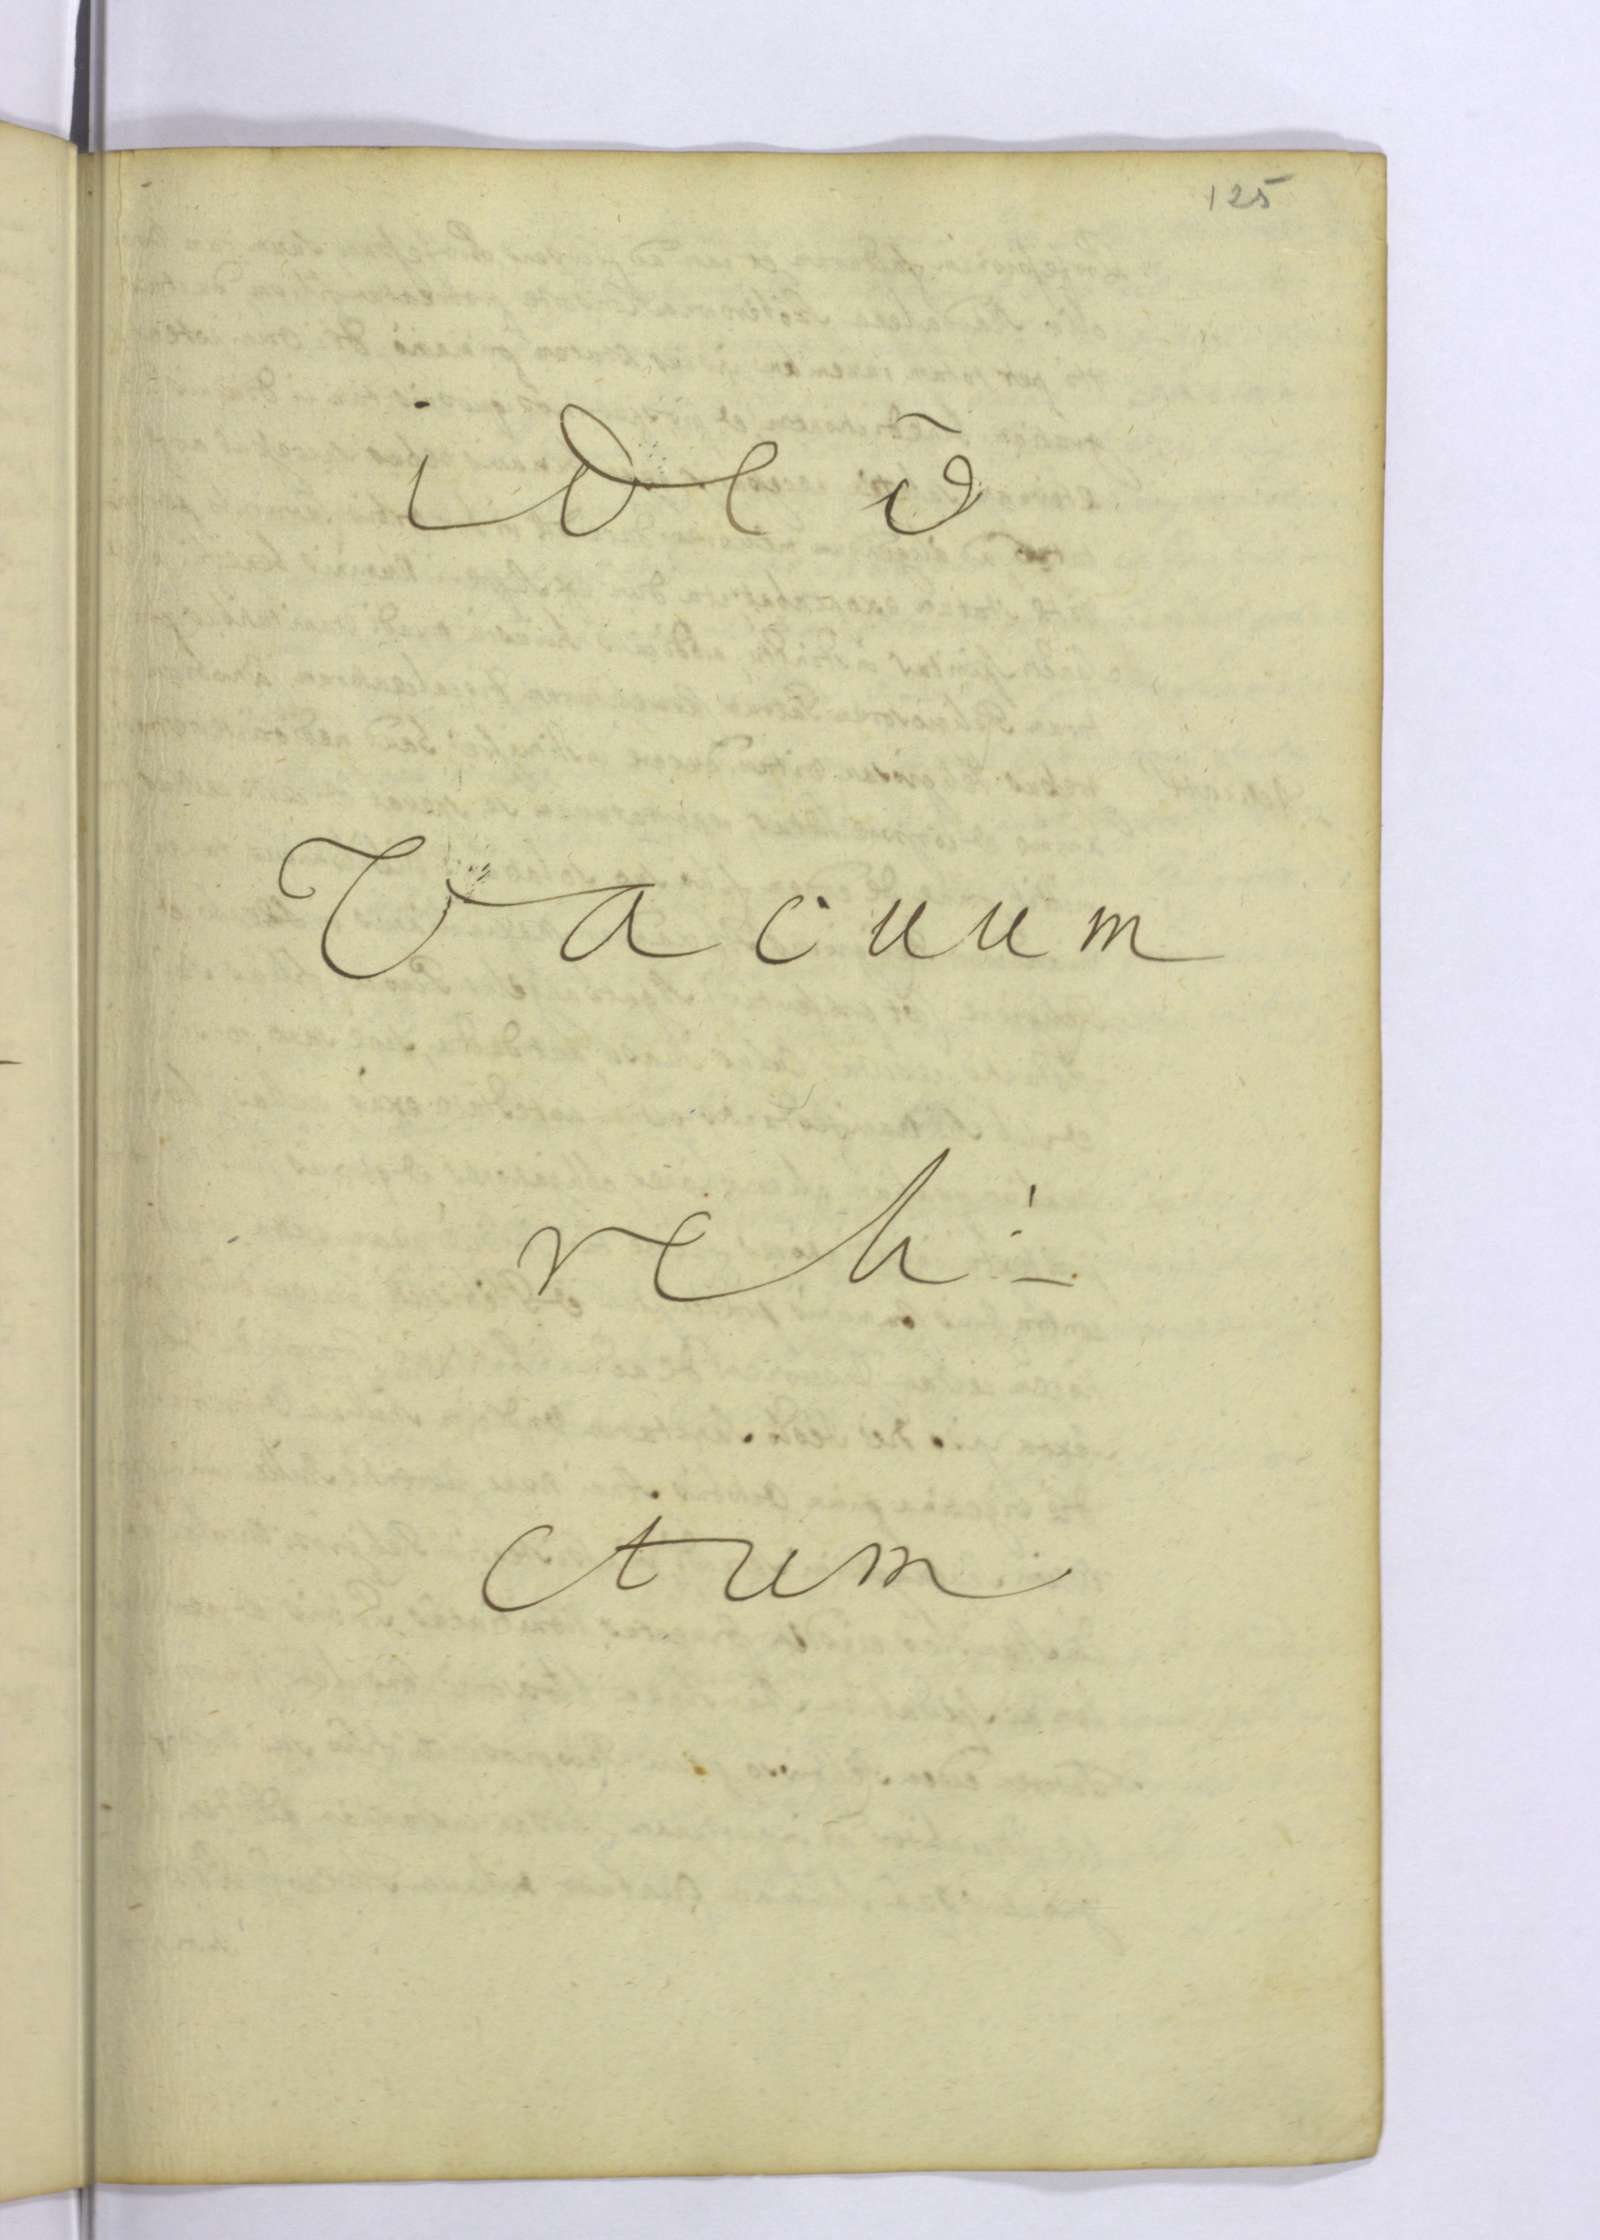 125
ideō
Vacuum
reli=
ctum